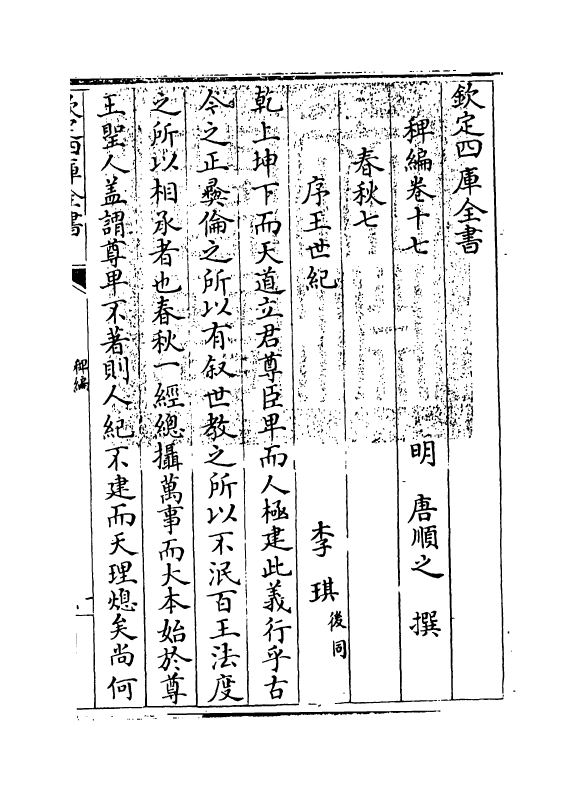 欽定四庫全書
稗編卷十七
明 唐順之 撰
春秋七
序王世紀
李琪後同
乾上坤下而天道立君尊臣卑而人極建此義行乎古
今之正彛倫之所以有叙世教之所以不泯百王法度
之所以相承者也春秋一經總攝萬事而大本始於尊
王聖人盖謂尊卑不著則人紀不建而天理熄矣尚何
欽定四庫全書
稗編
一